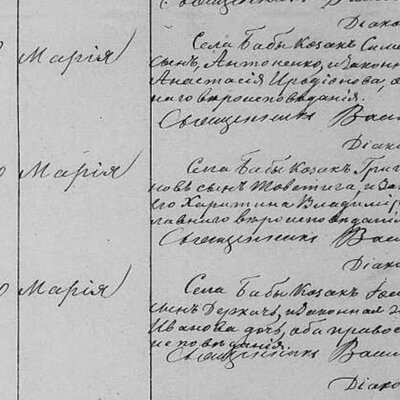 Священникъ
Діако
Марія
Села Бабы Козакъ Симе
сынъ Антоненко, и законн
Анастасія Иродіонова, о
наго вѣроисповѣданія.
Священникъ Васи
Діако
Марія
Села Бабы Козакъ Григ
новъ сынъ и за
его Харитина Владимір
лавнаго вѣроисповѣданія
Священникъ Васи
Діако
Марія
Села Бабы Козакъ
сынъ Деркачъ, и законная
Иванова дочь, оба правос
исповѣданія.
Священникъ Васи
Діако